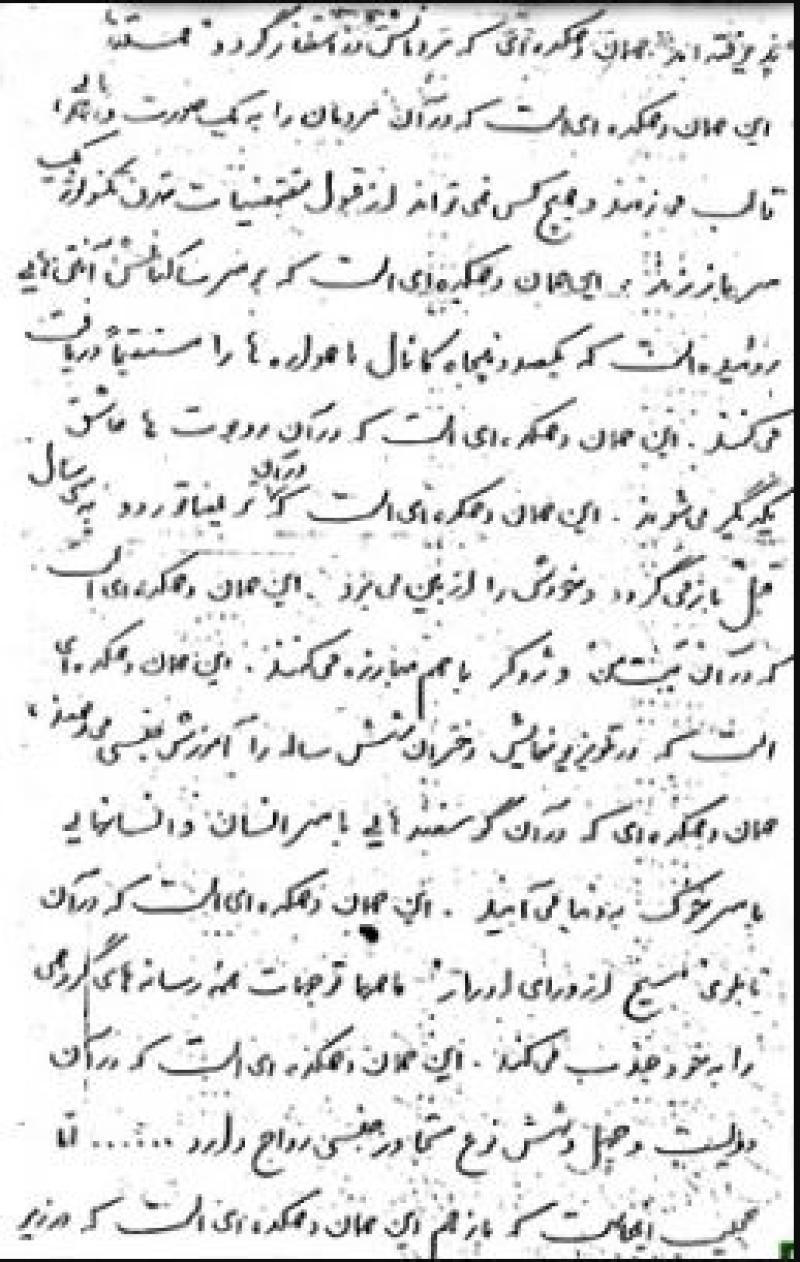 پذیرفته‌اند. همان دهکده‌ای که مردمانش
این همان دهکده‌ای است که در آن مردمان را به یک صورت و
قالب می‌زنند و هیچ کس نمی‌تواند از قبول مقتضیات تمدن تکنولوژیک
سر باز زند. این همان دهکده‌ای است که بر سر ساکنانش آنتن‌هایی
روئیده است که یکصد و پنجاه کانال ماهواره‌ها را مستقیماً دریافت
می‌کنند. این همان دهکده‌ای است که در آن روبوت‌ها عاشق
یکدیگر می‌شوند. این همان دهکده‌ای است که در آن ترمیناتور دو به سی سال
قبل باز می‌گردد و خودش را از بین می‌برد. این همان دهکده‌ای است
که در آن بتمن و ژوکر با هم مبارزه می‌کنند. این همان دهکده‌ای
است که در تلویزیونهایش دختران شش ساله را آموزش جنسی می‌دهند،
همان دهکده‌ای که در آن گوسفندهایی با سر انسان و انسانهایی
با سر خوک به دنیا می‌آیند. این همان دهکده‌ای است که در آن
تابلوی "مسیح از ورای ادرار" ماهها توجهات همه رسانه‌های گروهی
را به خود جذب می‌کند. این همان دهکده‌ای است که در آن
دویست و چهل و شش نوع تجاوز جنسی رواج دارد ...... امّا
عجیب اینجاست که باز هم این همان دهکده‌ای است که در زیر